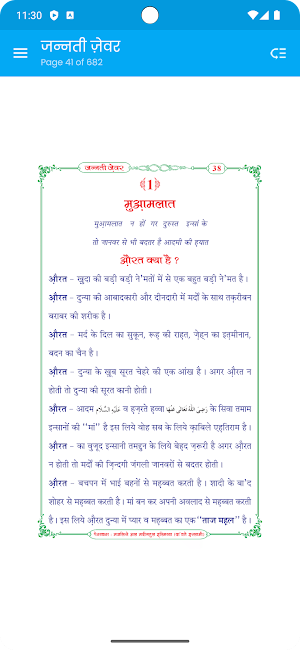 11:30
जन्नती ज़ेवर
Page 41 of 682
जन्नती ज़ेवर
38
﴾1﴿
मुआ़मलात
मुआ़मलात न हों गर दुरुस्त इन्सां के
तो जानवर से भी बदतर है आदमी की ह़यात
औ़रत क्या है ?
औ़रत - ख़ुदा की बड़ी बड़ी ने'मतों में से एक बहुत बड़ी ने'मत है।
औ़रत - दुन्या की आबादकारी और दीनदारी में मर्दों के साथ तक़रीबन
बराबर की शरीक है।
औ़रत - मर्द के दिल का सुकून, रूह़ की राह़त, ज़ेहन का इत़मीनान,
बदन का चैन है।
औ़रत - दुन्या के ख़ूब सूरत चेहरे की एक आंख है। अगर औ़रत न
होती तो दुन्या की सूरत कानी होती।
औ़रत - आदम عَلَيْهِ السَّلَام व ह़ज़रते ह़व्वा رَضِىَ اللّٰهُ تَعَالٰى عَنْهَا के सिवा तमाम
इन्सानों की "मां" है इस लिये वोह सब के लिये क़ाबिले एह़तिराम है।
औ़रत - का वुजूद इन्सानी तमद्दुन के लिये बेह़द ज़रूरी है अगर औ़रत
न होती तो मर्दों की ज़िन्दगी जंगली जानवरों से बदतर होती।
औ़रत - बचपन में भाई बहनों से मह़ब्बत करती है। शादी के बा'द
शोहर से मह़ब्बत करती है। मां बन कर अपनी अवलाद से मह़ब्बत करती
है। इस लिये औ़रत दुन्या में प्यार व मह़ब्बत का एक "ताज मह़ल" है।
पेशकश : मजलिसे अल मदीनतुल इ़ल्मिय्या (दा'वते इस्लामी)